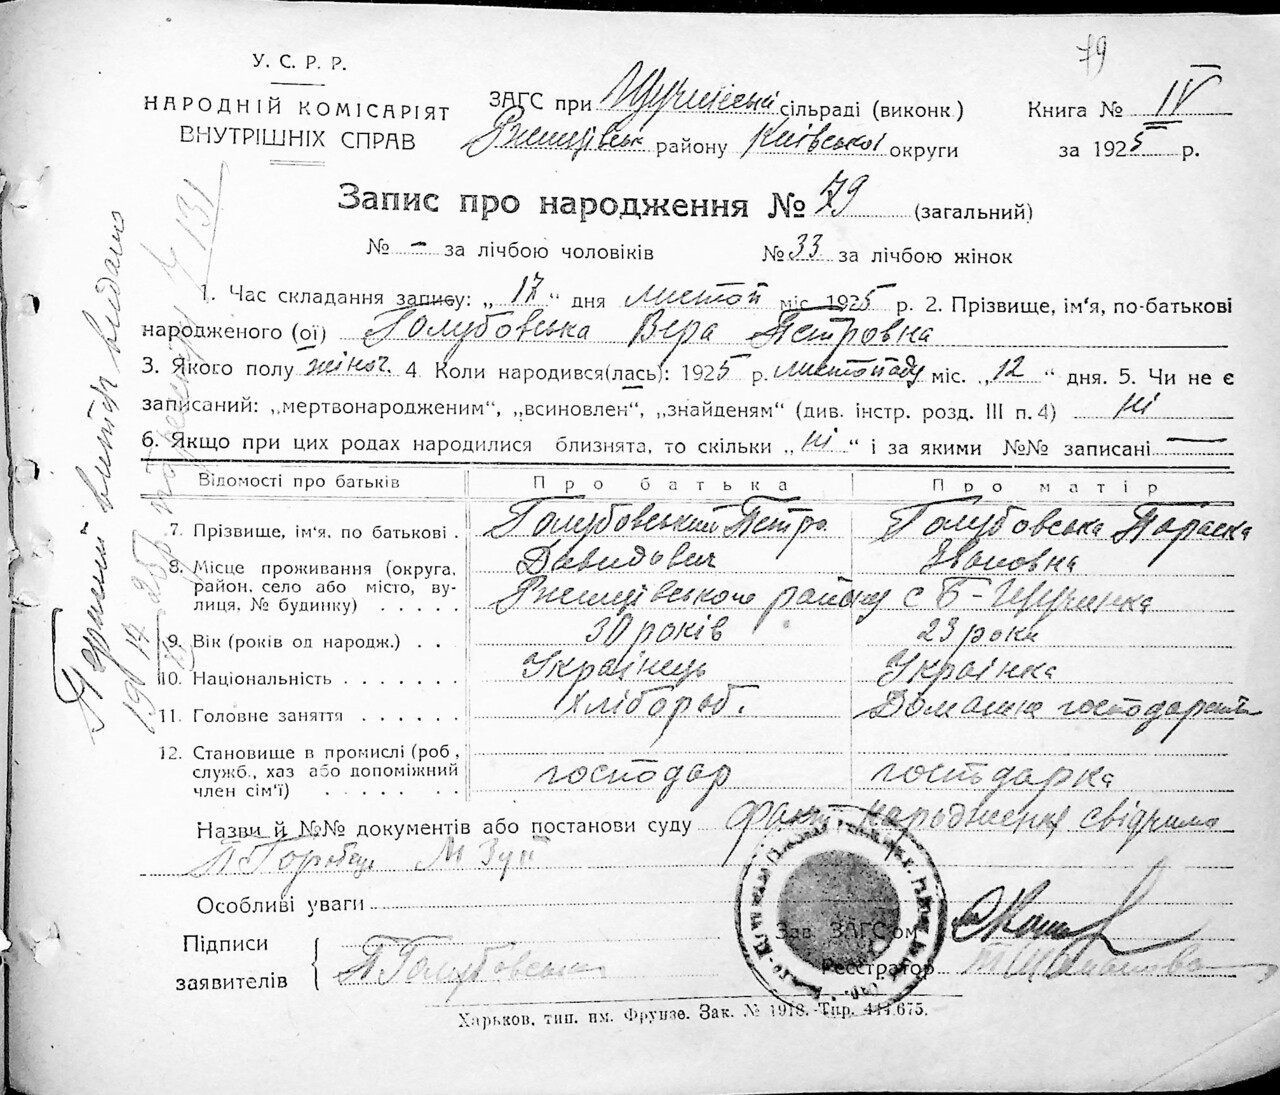 79
У. С. Р. Р.
НАРОДНІЙ КОМІСАРІЯТ
ВНУТРІШНІХ СПРАВ
ЗАГС при Щучинській сільраді (виконк.)
Ржищівськ району Київської округи
Книга № IV
за 1925 р.
Запис про народження № 79 (загальний)
№ – за лічбою чоловіків № 33 за лічбою жінок
1. Час складання запису: „ 17 “ дня листоп міс. 1925 р. 2. Прізвище, ім‘я, по-батькові
народженого (ої) Голубовська Вера Петровна
3. Якого полу жіноч. 4. Коли народився(лась): 1925 р. листопаду міс. „ 12 “ дня. 5. Чи не є
записаний: „мертвонародженим“, „всиновлен“, „знайденям“ (див. інстр. розд. III п. 4) ні
6. Якщо при цих родах народилися близнята, то скільки „ ні “ і за якими №№ записані —
Відомості про батьків Про батька Про матір
7. Прізвище, ім‘я, по батькові . Голубовський Петро Голубовська Параска
Давидович Івановна
8. Місце проживання (округа,
район, село або місто, ву-
лиця, № будинку) . . . . . Ржищівського району с Б-Щучинка
9. Вік (років од народж.) . . 30 років 23 роки
10. Національність . . . . . . . Українець Українка
11. Головне заняття . . . . . . Хлібороб. Домашнє
12. Становище в промислі (роб.,
служб., хаз або допоміжний
член сім‘ї) . . . . . . . господар господарка
Назви й №№ документів або постанови суду факт народження свідчили
Особливі уваги
Підписи
заявителів
П Голубовський
Зав. ЗАГС‘ом
Реєстратор
Харьков, тип. им. Фрунзе. Зак. № 1918. Тир. 444.675.
Первий витяг видано